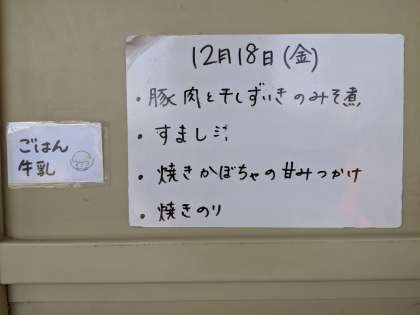 12月18日(金)
・豚肉と干しずいきのみそ煮
・すまし汁
・焼きかぼちゃの甘みつかけ
・焼きのり
ごはん
牛乳